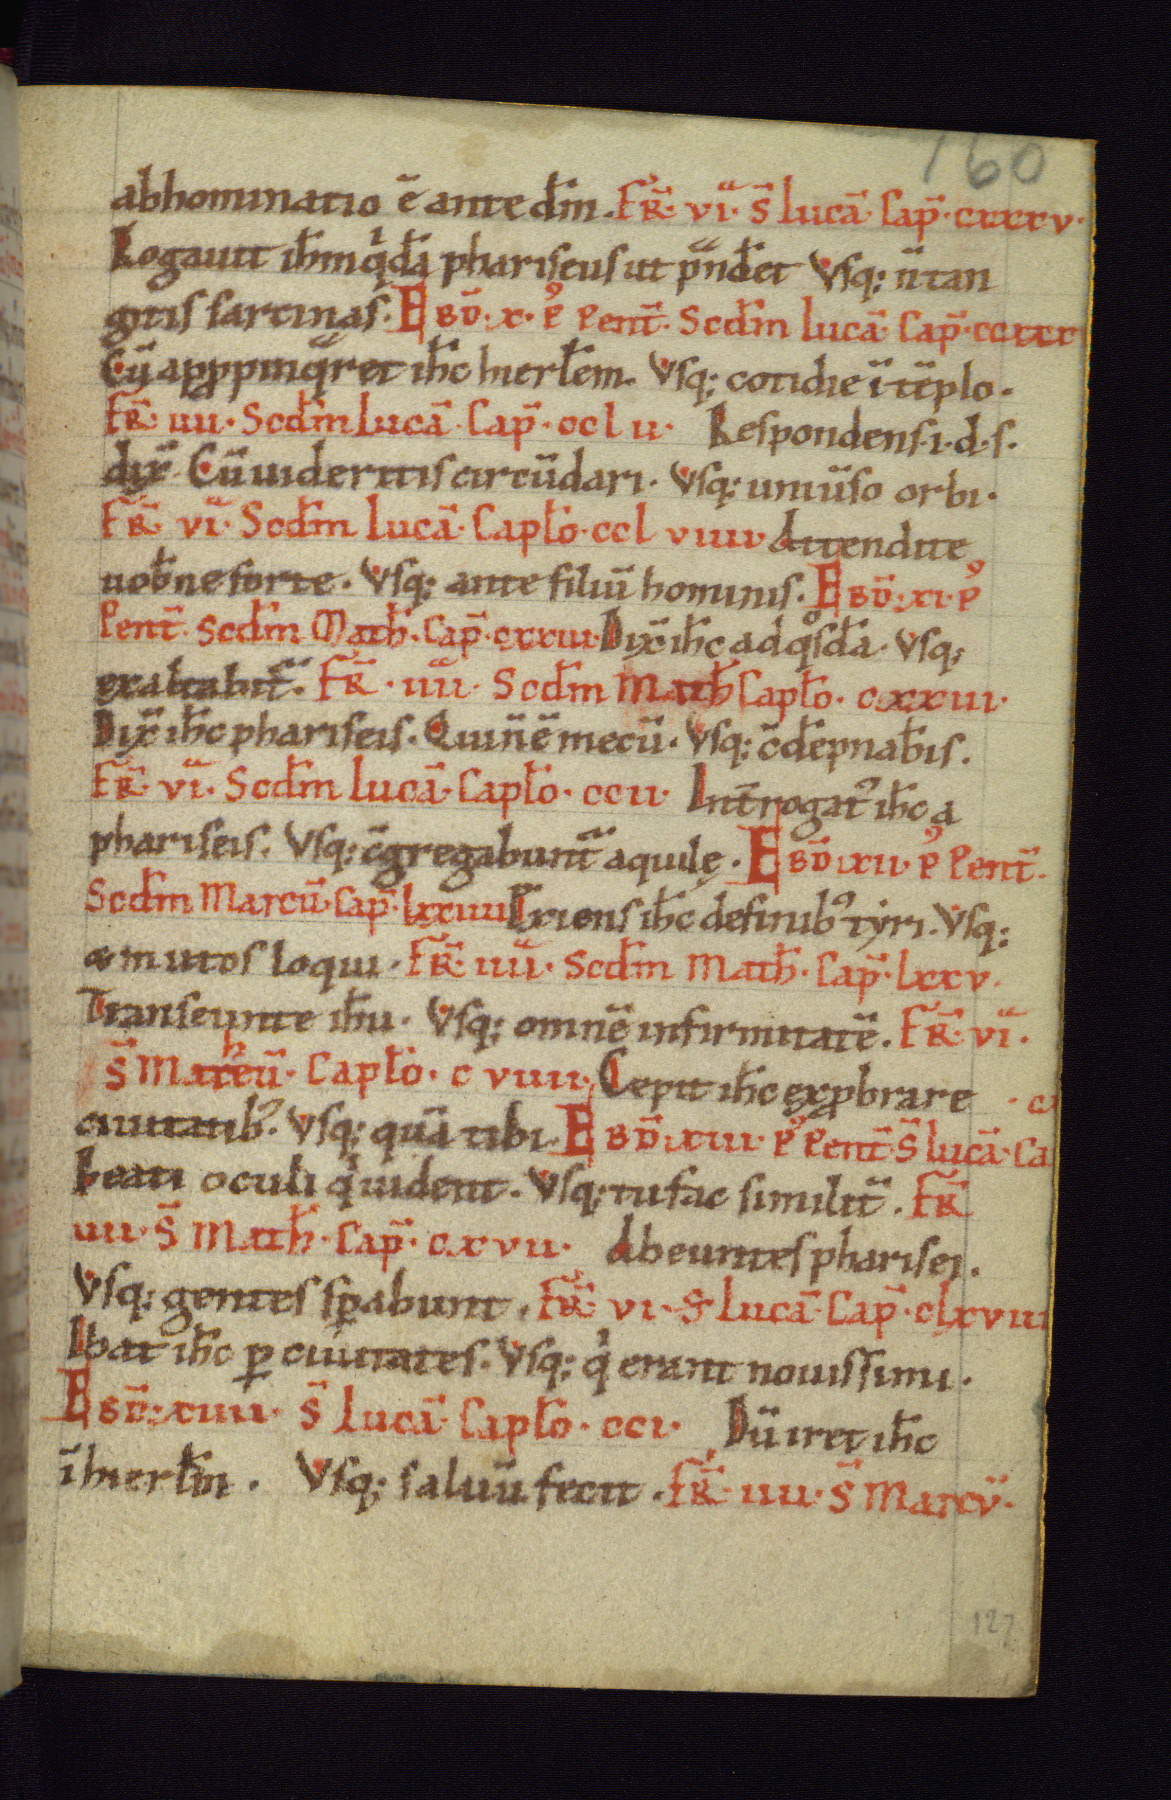 160
abhominatio ē ante dm̄. FR̄. vi͞a. S̄ lucā. Cap̄. cxxxv.
Rogauit ih̄m qͥdā phariseus ut pᷓnd̄et Vsq; n̄ tan
gitis sarcinas. EBD̄. x. pꝰ Pent̄. Scd̄m lucā. Cap̄. ccxxx
Cū apꝓpinqᷓret ih̄c hierl̄em. Vsq; cotidie ī tēplo.
FR̄. iiii. Scd̄m Lucā. Cap̄. ccl u. Respondens. i. d. s.
dix̄. Cū uideritis circūdari. Vsq; uniūso orbi.
FR̄. vi͞a. Scd̄m lucā. Capl̄o. ccl viiii. Attendite
uob̄ ne forte. Vsq; ante filiū hominis. EBD̄. xi. pꝰ
Pent̄. Scd̄m Math̄. Cap̄. cxxiii. Dix̄ ih̄c ad qͦsdā. Vsq;
exaltabit᷑. FR̄. iiii͞a. Scd̄m Math̄ Capl̄o. cxxiii.
Dix̄ ih̄c phariseis. Qui n̄ ē mecū. Vsq; c̄dēpnab̄is.
FR̄. vi͞a. Scd̄m lucā. Capl̄o. ccii. Int̄rogatꝰ ih̄c a
phariseis. Vsq; c̄gregabunt᷑ aquilę. EBD̄. xii. pꝰ Pent̄.
Scd̄m Marcū. Cap̄. lxxiiii Exiens ih̄c de finibꝰ tyri. Vsq;
& mutos loqui. FR̄. iiii͞a. Scd̄m Math̄. Cap̄. lxxv.
Transeunte ih̄u. Vsq; omnē infirmitatē. FR̄. vi͞a.
S̄ Matheū. Capl̄o. c viiii. Cepit ih̄c exꝓbrare
ciuitatibꝰ. Vsq; quā tibi. EBD̄. xiii. pꝰ Pent̄ S̄ lucā. Ca
beati oculi qͥ uident. Vsq; tu fac similit̄. FR̄
iiii. S̄ Math̄. Cap̄. cxvii. Abeuntes pharisei.
Vsq; gentes sꝑabunt. FR̄. vi. S̄ lucā. Cap̄. clxviii
Ibat ih̄c ꝑ ciuitates. Vsq; qͥ erant nouissimi.
EBD̄. xiiii. S̄ lucā. Capl̄o. cci. Dū iret ih̄c
ī hierl̄m. Vsq; saluū fecit. FR̄. iiii. S̄ Marcū.
127